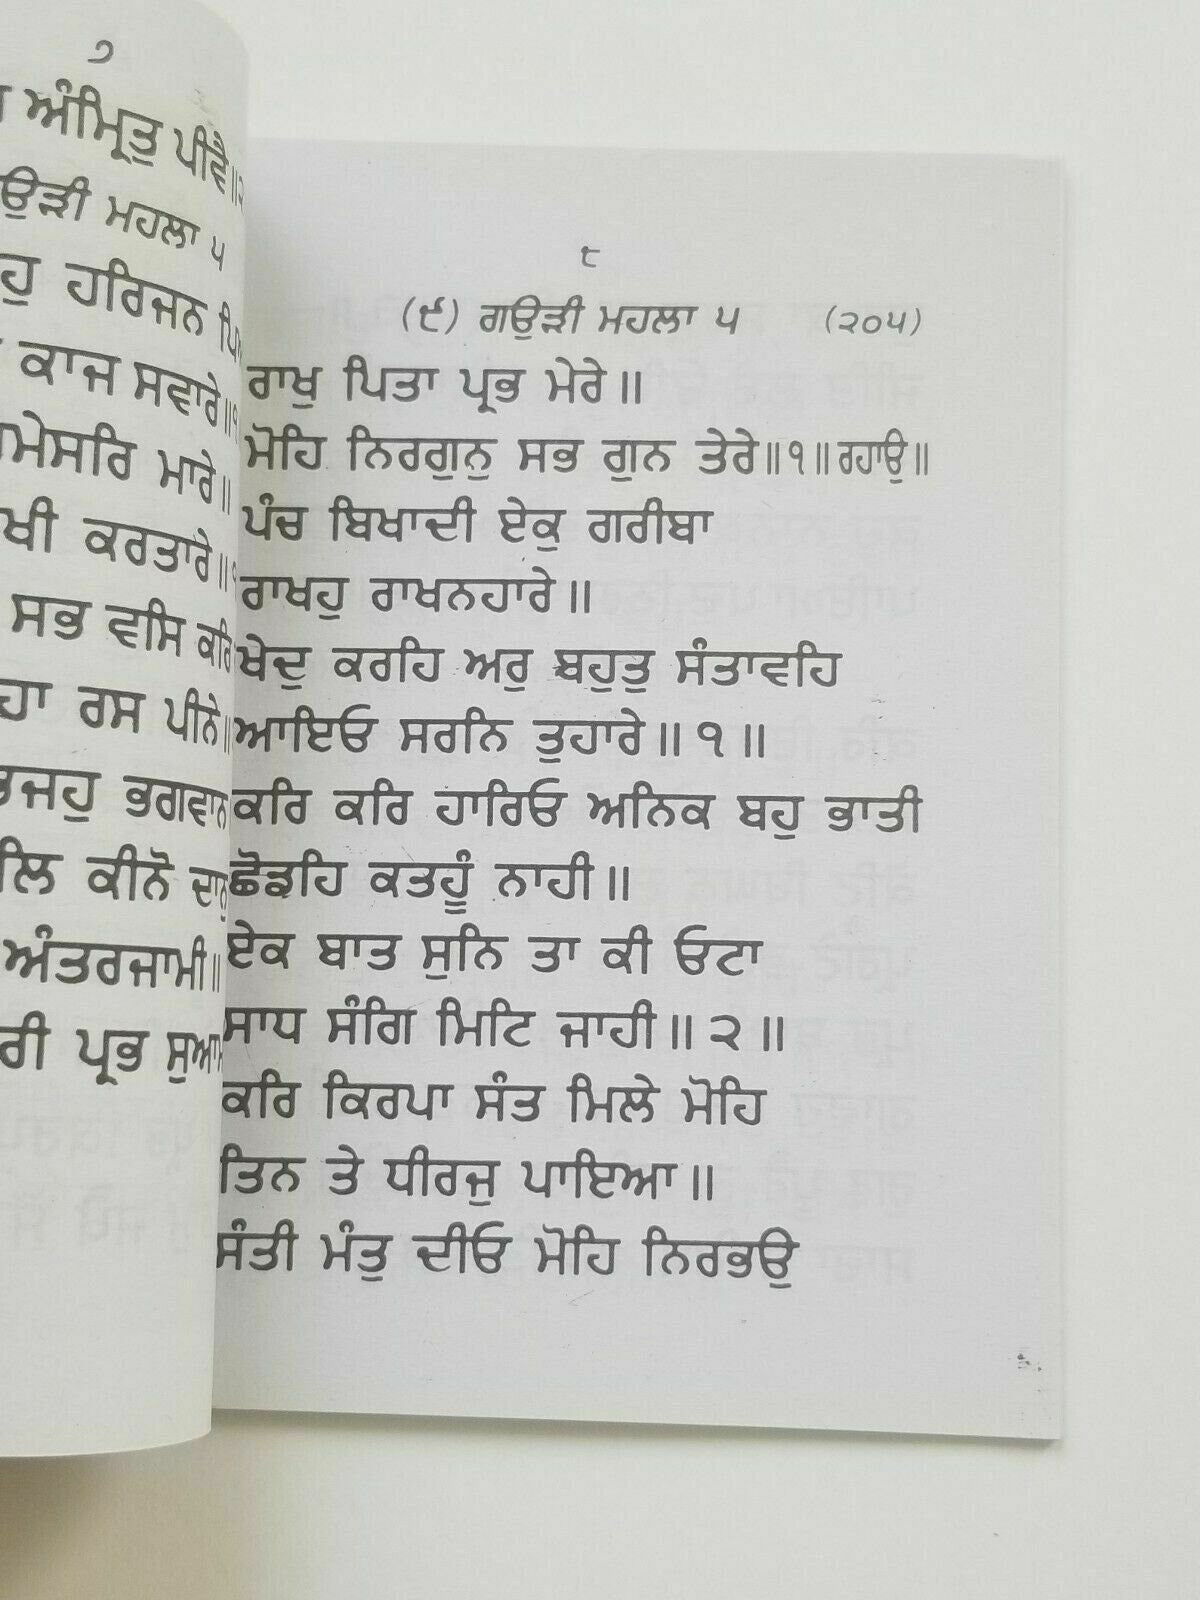 ੭
ਅੰਮ੍ਰਿਤੁ ਪੀਵੈ॥੨
ਗਉੜੀ ਮਹਲਾ ੫
ਹਰਿਜਨ
ਕਾਜ ਸਵਾਰੇ॥੧
ਮਾਰੇ॥
ਕਰਤਾਰੇ॥੧
ਸਭ ਵਸਿ ਕਰਿ
ਰਸ ਪੀਨੇ॥
ਭਜਹੁ ਭਗਵਾਨ
ਕੀਨੋ ਦਾਨੁ
ਅੰਤਰਜਾਮੀ॥
ਪ੍ਰਭ ਸੁਆਮ
੮
(੯) ਗਉੜੀ ਮਹਲਾ ੫ (੨੦੫)
ਰਾਖੁ ਪਿਤਾ ਪ੍ਰਭ ਮੇਰੇ॥
ਮੋਹਿ ਨਿਰਗੁਨੁ ਸਭ ਗੁਨ ਤੇਰੇ॥੧॥ਰਹਾਉ॥
ਪੰਚ ਬਿਖਾਦੀ ਏਕੁ ਗਰੀਬਾ
ਰਾਖਹੁ ਰਾਖਨਹਾਰੇ॥
ਖੇਦੁ ਕਰਹਿ ਅਰੁ ਬਹੁਤੁ ਸੰਤਾਵਹਿ
ਆਇਓ ਸਰਨਿ ਤੁਹਾਰੇ॥੧॥
ਕਰਿ ਕਰਿ ਹਾਰਿਓ ਅਨਿਕ ਬਹੁ ਭਾਤੀ
ਛੋਡਹਿ ਕਤਹੂੰ ਨਾਹੀ॥
ਏਕ ਬਾਤ ਸੁਨਿ ਤਾ ਕੀ ਓਟਾ
ਸਾਧ ਸੰਗਿ ਮਿਟਿ ਜਾਹੀ॥੨॥
ਕਰਿ ਕਿਰਪਾ ਸੰਤ ਮਿਲੇ ਮੋਹਿ
ਤਿਨ ਤੇ ਧੀਰਜੁ ਪਾਇਆ॥
ਸੰਤੀ ਮੰਤੁ ਦੀਓ ਮੋਹਿ ਨਿਰਭਉ